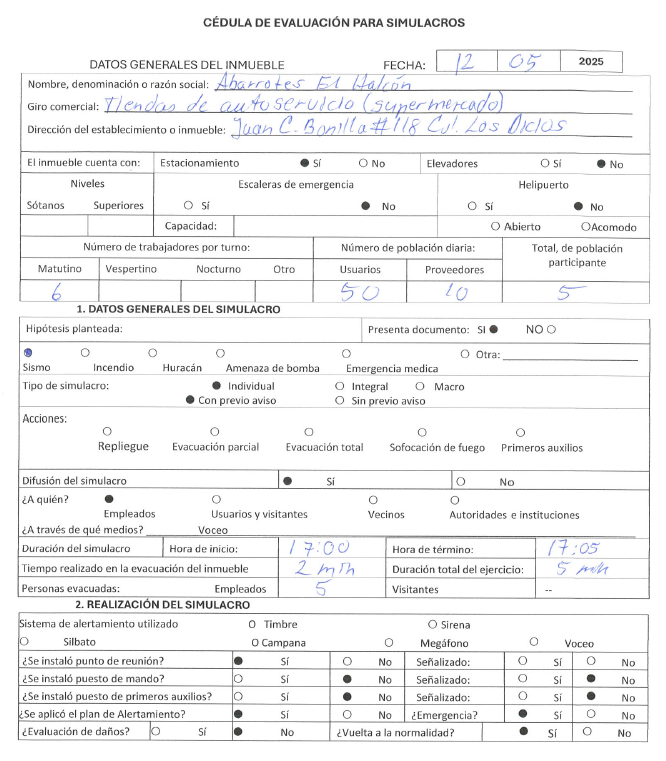 CÉDULA DE EVALUACIÓN PARA SIMULACROS
DATOS GENERALES DEL INMUEBLE FECHA: 12 05 2025
Nombre, denominación o razón social: Abarrotes El Halcón
Giro comercial: Tiendas de autoservicio (supermercado)
Dirección del establecimiento o inmueble: Juan C. Bonilla #118 Col. Los Diclos
El inmueble cuenta con: Estacionamiento ● Sí ○ No Elevadores ○ Sí ● No
Niveles Escaleras de emergencia Helipuerto
Sótanos Superiores ○ Sí ● No ○ Sí ● No
Capacidad: ○ Abierto ○ Acomodo
Número de trabajadores por turno: Número de población diaria: Total, de población
participante
Matutino Vespertino Nocturno Otro Usuarios Proveedores
6 50 10 5
1. DATOS GENERALES DEL SIMULACRO
Hipótesis planteada: Presenta documento: SI ● NO ○
● ○ ○ ○ ○ ○ Otra:
Sismo Incendio Huracán Amenaza de bomba Emergencia medica
Tipo de simulacro: ● Individual ○ Integral ○ Macro
● Con previo aviso ○ Sin previo aviso
Acciones:
○ ○ ○ ○ ○
Repliegue Evacuación parcial Evacuación total Sofocación de fuego Primeros auxilios
Difusión del simulacro ● Sí ○ No
¿A quién? ● ○ ○ ○
Empleados Usuarios y visitantes Vecinos Autoridades e instituciones
¿A través de qué medios? Voceo
Duración del simulacro Hora de inicio: 17:00 Hora de término: 17:05
Tiempo realizado en la evacuación del inmueble 2 min Duración total del ejercicio: 5 min
Personas evacuadas: Empleados 5 Visitantes --
2. REALIZACIÓN DEL SIMULACRO
Sistema de alertamiento utilizado ○ Timbre ○ Sirena
○ Silbato ○ Campana ○ Megáfono ○ Voceo
¿Se instaló punto de reunión? ● Sí ○ No Señalizado: ○ Sí ○ No
¿Se instaló puesto de mando? ○ Sí ● No Señalizado: ○ Sí ● No
¿Se instaló puesto de primeros auxilios? ○ Sí ● No Señalizado: ○ Sí ● No
¿Se aplicó el plan de Alertamiento? ● Sí ○ No ¿Emergencia? ● Sí ○ No
¿Evaluación de daños? ○ Sí ● No ¿Vuelta a la normalidad? ● Sí ○ No